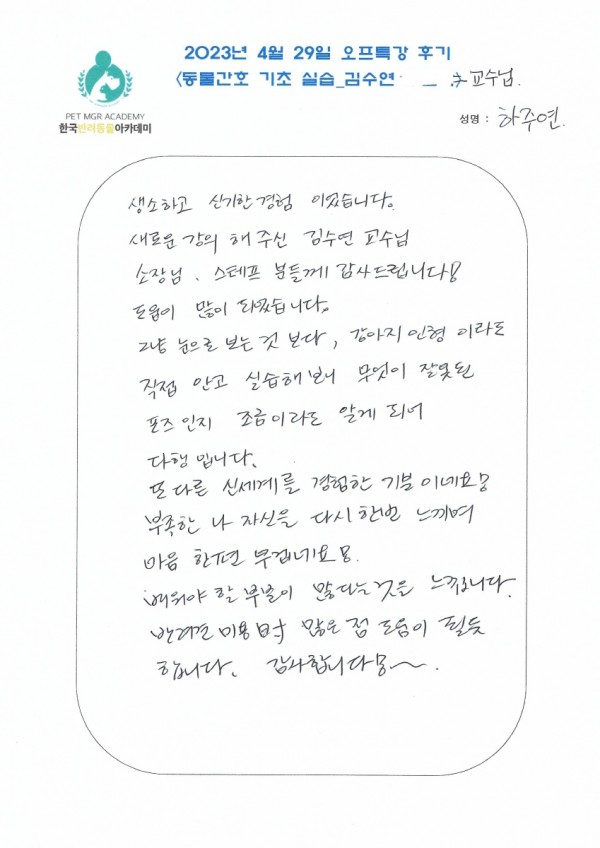 2023년 4월 29일 오프특강 후기
<동물간호 기초 실습_김수연 교수님.
PET MGR ACADEMY
한국반려동물아카데미
성명 : 하주연.
생소하고 신기한 경험 이였습니다.
새로운 강의 해 주신 김수연 교수님
소장님. 스테프 분들께 감사드립니다!
도움이 많이 되었습니다.
그냥 눈으로 보는 것 보다, 강아지 인형 이라도
직접 안고 실습해 보니 무엇이 잘못된
포즈 인지 조금이라도 알게 되어
다행 입니다.
또 다른 신세계를 경험한 기분 이네요!
부족한 나 자신을 다시 한번 느끼며
마음 한편 무겁네요!.
배워야 할 부분이 많다는 것을 느낍니다.
반려견 미용 時 많은 점 도움이 될듯
합니다. 감사합니다!~.